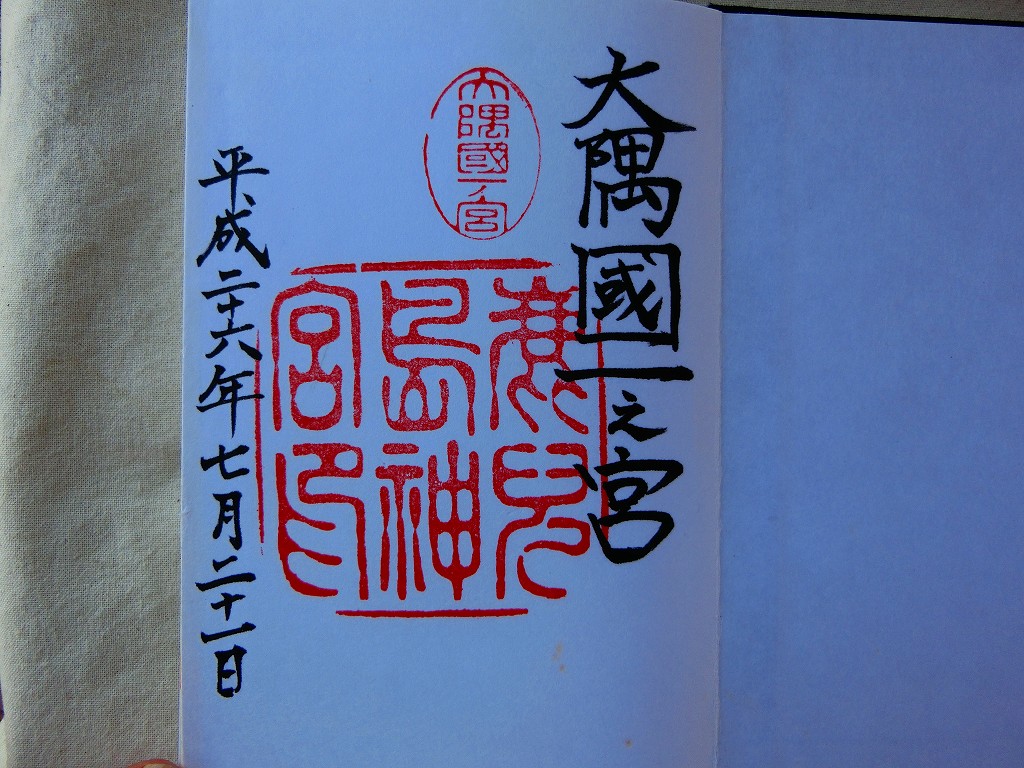 大隅國一之宮
大隅國一ノ宮
鹿兒
島神
宮印
平成二十六年七月二十一日